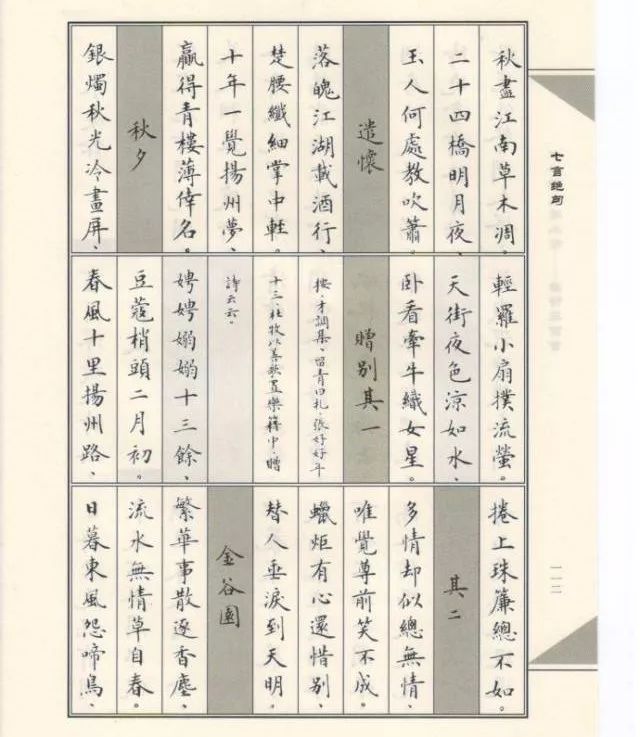 七言絕句
一一二
秋盡江南草木凋、
二十四橋明月夜、
玉人何處教吹簫。
遣懷
落魄江湖載酒行、
楚腰纖細掌中輕。
十年一覺揚州夢、
贏得青樓薄倖名。
秋夕
銀燭秋光冷畫屏、
輕羅小扇撲流螢。
天街夜色涼如水、
卧看牽牛織女星。
贈別其一
按、才調集、留青日札、張好好年
十三、杜牧以善歌置樂籍中、贈
詩云云。
娉娉嫋嫋十三餘、
豆蔻梢頭二月初。
春風十里揚州路、
捲上珠簾總不如。
其二
多情却似總無情、
唯覺尊前笑不成。
蠟炬有心還惜別、
替人垂淚到天明。
金谷園
繁華事散逐香塵、
流水無情草自春。
日暮東風怨啼鳥、